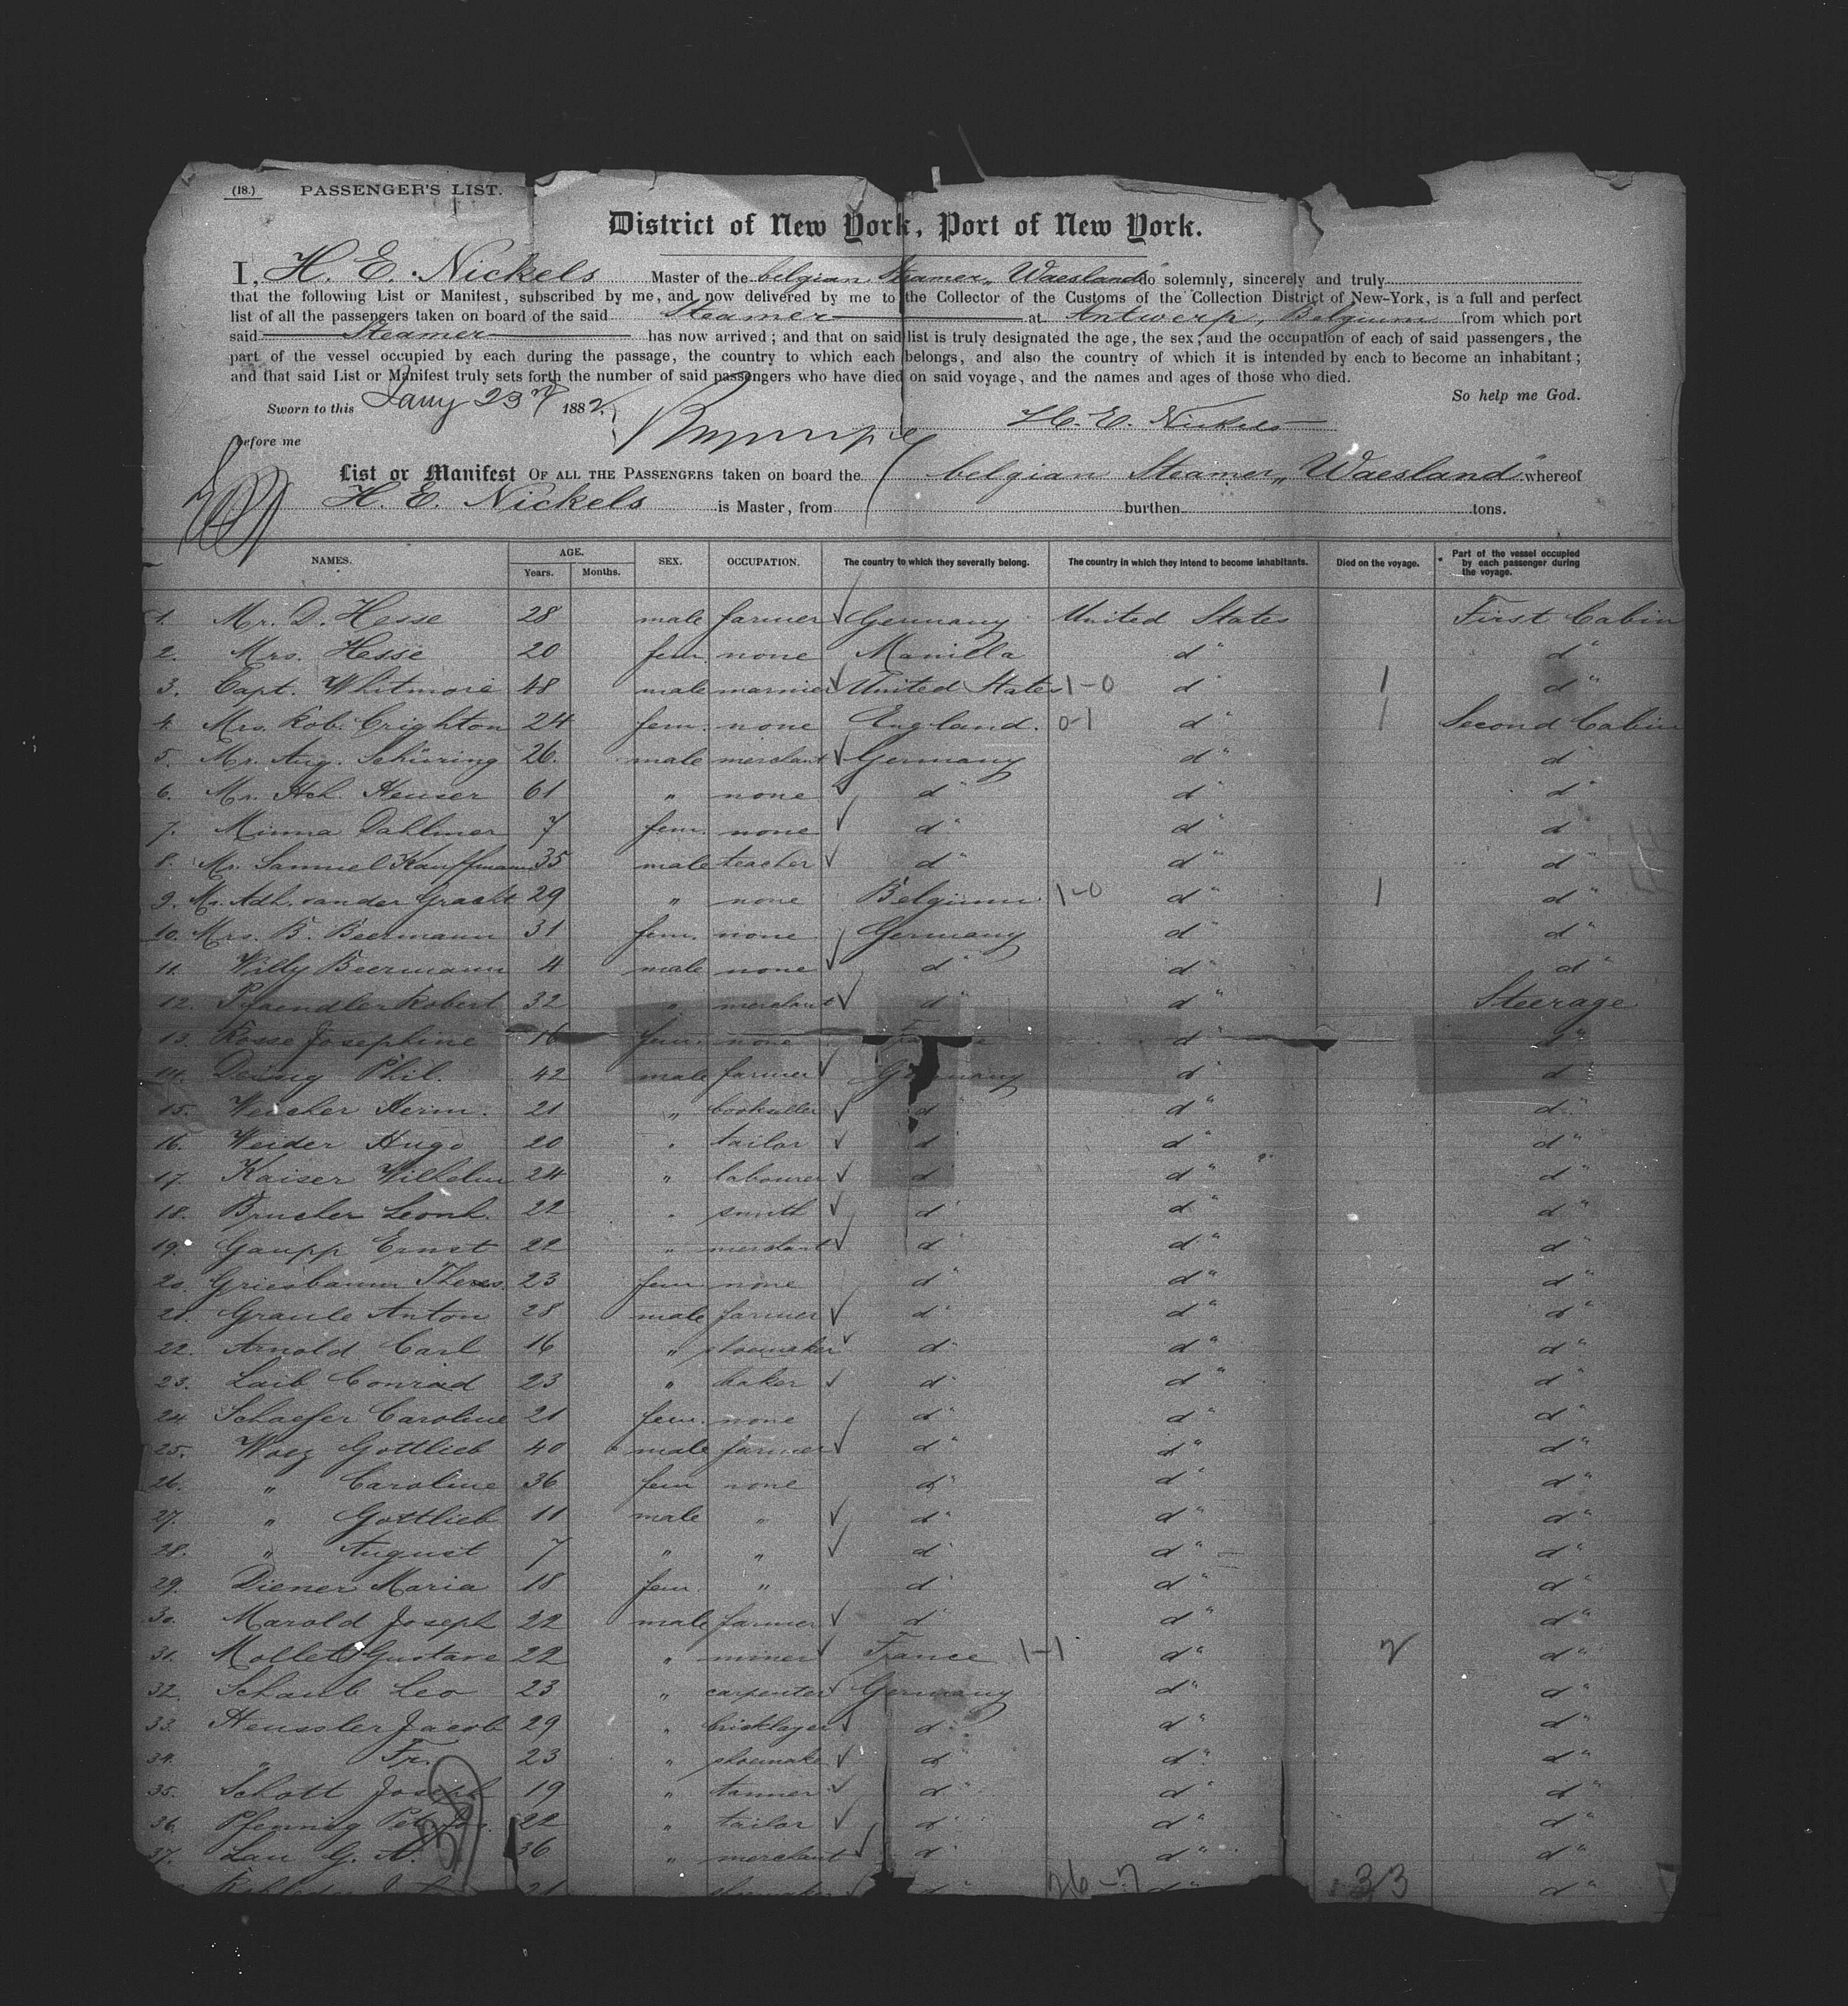 (18.) PASSENGER'S LIST.
District of New York, Port of New York.
I, H. E. Nickels Master of the belgian Steamer „Waesland" do solemnly, sincerely and truly
that the following List or Manifest, subscribed by me, and now delivered by me to the Collector of the Customs of the Collection District of New-York, is a full and perfect
list of all the passengers taken on board of the said Steamer at Antwerp, Belgium from which port
said Steamer has now arrived; and that on said list is truly designated the age, the sex, and the occupation of each of said passengers, the
part of the vessel occupied by each during the passage, the country to which each belongs, and also the country of which it is intended by each to become an inhabitant;
and that said List or Manifest truly sets forth the number of said passengers who have died on said voyage, and the names and ages of those who died.
So help me God.
Sworn to this Jany 23 1882
H. E. Nickels
before me
List or Manifest OF ALL THE PASSENGERS taken on board the belgian Steamer „Waesland" whereof
H. E. Nickels is Master, from burthen tons.
NAMES. AGE. Years. Months. SEX. OCCUPATION. The country to which they severally belong. The country in which they intend to become inhabitants. Died on the voyage. Part of the vessel occupied by each passenger during the voyage.
1. Mr. D. Hesse 28 male farmer Germany United States First Cabin
2. Mrs. Hesse 20 fem. none Manilla d" d"
3. Capt. Whitmore 48 male mariner United States 1-0 d" 1 d"
4. Mrs. Rob. Crighton 24 fem. none England. 0-1 d" 1 Second Cabin
5. Mr. Aug. Schüring 26. male merchant Germany d" d"
6. Mr. Hch. Heuser 61 " none d" d" d"
7. Minna Dahlmer 7 fem. none d" d" d
8. Mr. Samuel Kauffmann 35 male teacher d" d" d"
9. Mr. Adh. vander Gracht 29 " none Belgium 1-0 d" 1 d"
10. Mrs. B. Beermann 31 fem. none Germany d" d"
11. Willy Beermann 4 male none d" d" d"
12. Pfaendler Robert 32 " merchant d" d" Steerage
13. Rosse Josephine 16 fem. none d" d"
14. Phil. 42 male farmer Germany d" d
15. Herm. 21 " bookseller d" d" d"
16. Weider Hugo 20 " tailor d" d" d"
17. Kaiser Wilhelm 24 " labourer d d" d"
18. Brucher Leonh. 22 " smith d" d" d"
19. Gaupp Ernst 22 " merchant d" d" d"
20. Griesbaum Theres. 23 fem none d" d" d"
21. Graule Anton 28 male farmer d" d" d"
22. Arnold Carl 16 " shoemaker d" d" d"
23. Laib Conrad 23 " baker d" d" d"
24. Schaefer Caroline 21 fem. none d" d" d"
25. Woez Gottlieb 40 male farmer d" d" d"
26. " Caroline 36 fem none d" d" d"
27. " Gottlieb 11 male " d" d" d"
28. " August 7 " " d" d" d"
29. Diener Maria 18 fem. " d" d" d"
30. Marold Joseph 22 male farmer d" d" d"
31. Mollet Gustave 22 " miner France 1-1 d" 2 d"
32. Schaub Leo 23 " carpenter Germany d" d"
33. Heussler Jacob 29 " bricklayer d" d" d"
34. " Fr. 23 " shoemake d" d" d"
35. Schott Joseph 19 " tanner d" d" d"
36. Pfennig Pet. 22 " tailor d" d" d"
37. Lau G. A. 36 " merchant d" d" d"
21 shoemaker d" 26-7 d" 33 d"